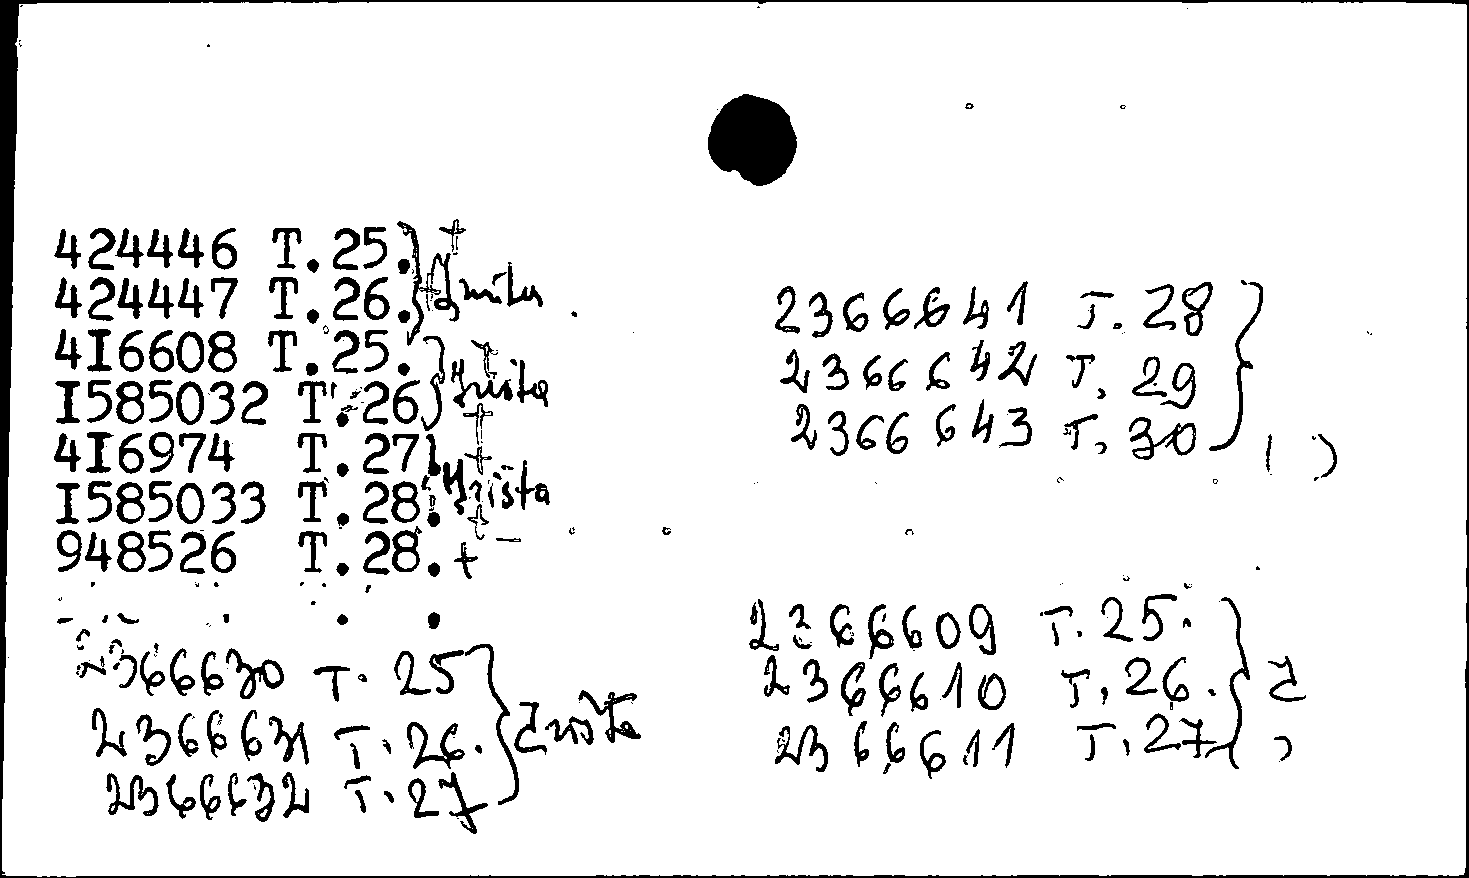 424446 T.25.
424447 T.26.
4I6608 T.25.
I585032 T.26
4I6974 T.27
I585033 T.28.
948526 T.28.+
2366630 T. 25
2366631 T. 26.
2366632 T. 27
2366641 T. 28
2366642 T. 29
2366643 T. 30
2366609 T. 25.
2366610 T. 26.
2366611 T. 27